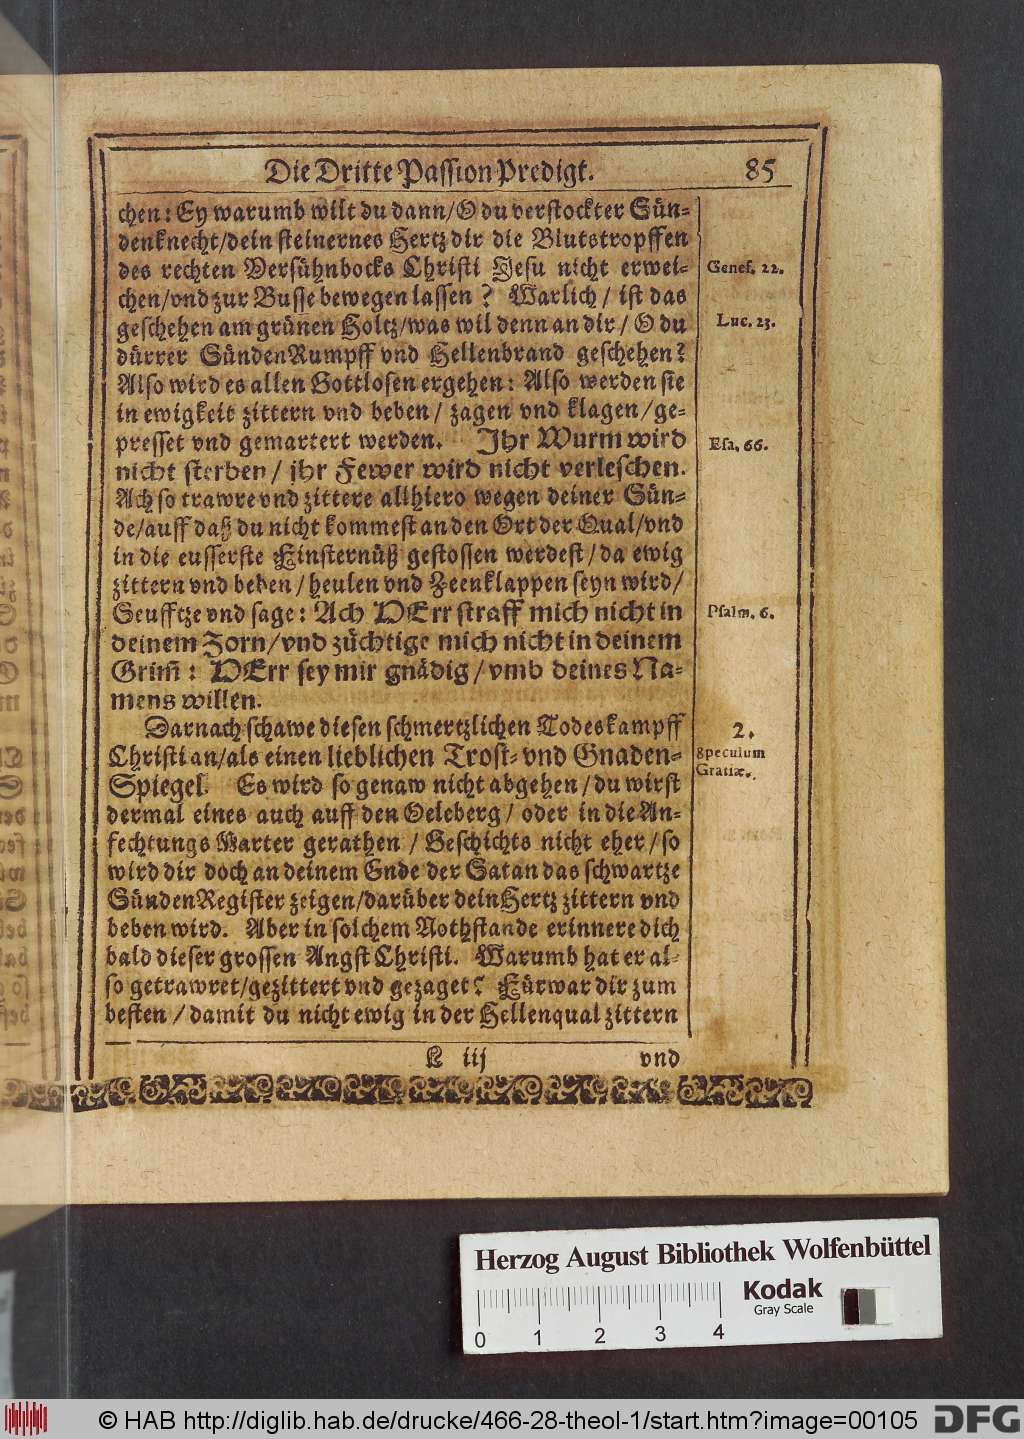 Die Dritte Passion Predigt. 85
chen: Ey warumb wilt du dann/O du verstockter Sün-
denknecht/dein steinernes Hertz dir die Blutstropffen
des rechten Versühnbocks Christi Jesu nicht erwei-
chen/vnd zur Busse bewegen lassen? Warlich/ ist das
geschehen am grünen Holtz/was wil denn an dir/ O du
dürrer SündenRumpff vnd Hellenbrand geschehen?
Also wird es allen Gottlosen ergehen: Also werden sie
in ewigkeit zittern vnd beben/ zagen vnd klagen/ge-
presset vnd gemartert werden. Ihr Wurm wird
nicht sterben/ ihr Fewer wird nicht verleschen.
Ach so trawre vnd zittere allhiero wegen deiner Sün-
de/auff daß du nicht kommest an den Ort der Qual/vnd
in die eusserste Finsternüß gestossen werdest/da ewig
zittern vnd beben/heulen vnd Zeenklappen seyn wird/
Seufftze vnd sage: Ach HErr straff mich nicht in
deinem Zorn/vnd züchtige mich nicht in deinem
Grim̃: HErr sey mir gnädig/vmb deines Na-
mens willen.
Darnach schawe diesen schmertzlichen Todeskampff
Christi an/als einen lieblichen Trost- vnd Gnaden-
Spiegel. Es wird so genaw nicht abgehen/du wirst
dermal eines auch auff den Oeleberg/ oder in die An-
fechtungs Marter gerathen / Geschichts nicht eher/so
wird dir doch an deinem Ende der Satan das schwartze
SündenRegister zeigen/darüber dein Hertz zittern vnd
beben wird. Aber in solchem Nothstande erinnere dich
bald dieser grossen Angst Christi. Warumb hat er al-
so getrawret/gezittert vnd gezaget? Fürwar dir zum
besten / damit du nicht ewig in der Hellenqual zittern
L iij vnd
Genes. 22.
Luc. 23.
Esa. 66.
Psalm. 6.
2.
Speculum
Gratiæ.
Herzog August Bibliothek Wolfenbüttel
Kodak
Gray Scale
0 1 2 3 4
© HAB http://diglib.hab.de/drucke/466-28-theol-1/start.htm?image=00105
DFG